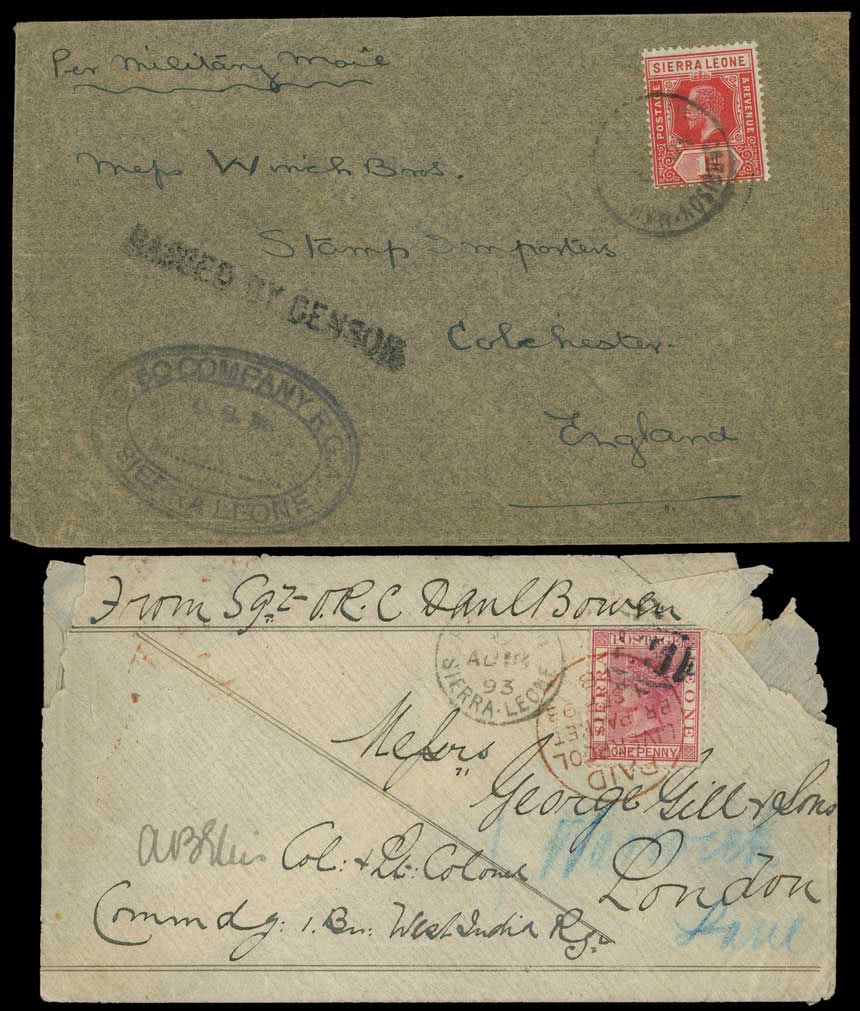 Per Military Mail
SIERRA LEONE
POSTAGE
& REVENUE
GARRISON
Mess Winch Bros.
Stamp Importers
Colchester.
England
PASSED BY CENSOR
COMPANY, R.G.A.
SIERRA LEONE
From Sgt O.R.C Danl Bowen
AU
93
SIERRA-LEONE
POSTAGE
SIERRA
LEONE
ONE PENNY
PAID
LIVERPOOL
BR PACKET
Messrs
George Gill & Sons
London
ABEllis Col: & Lt: Colonel
Commdg: 1. Bn: West India Rgt
Warwick
Lane